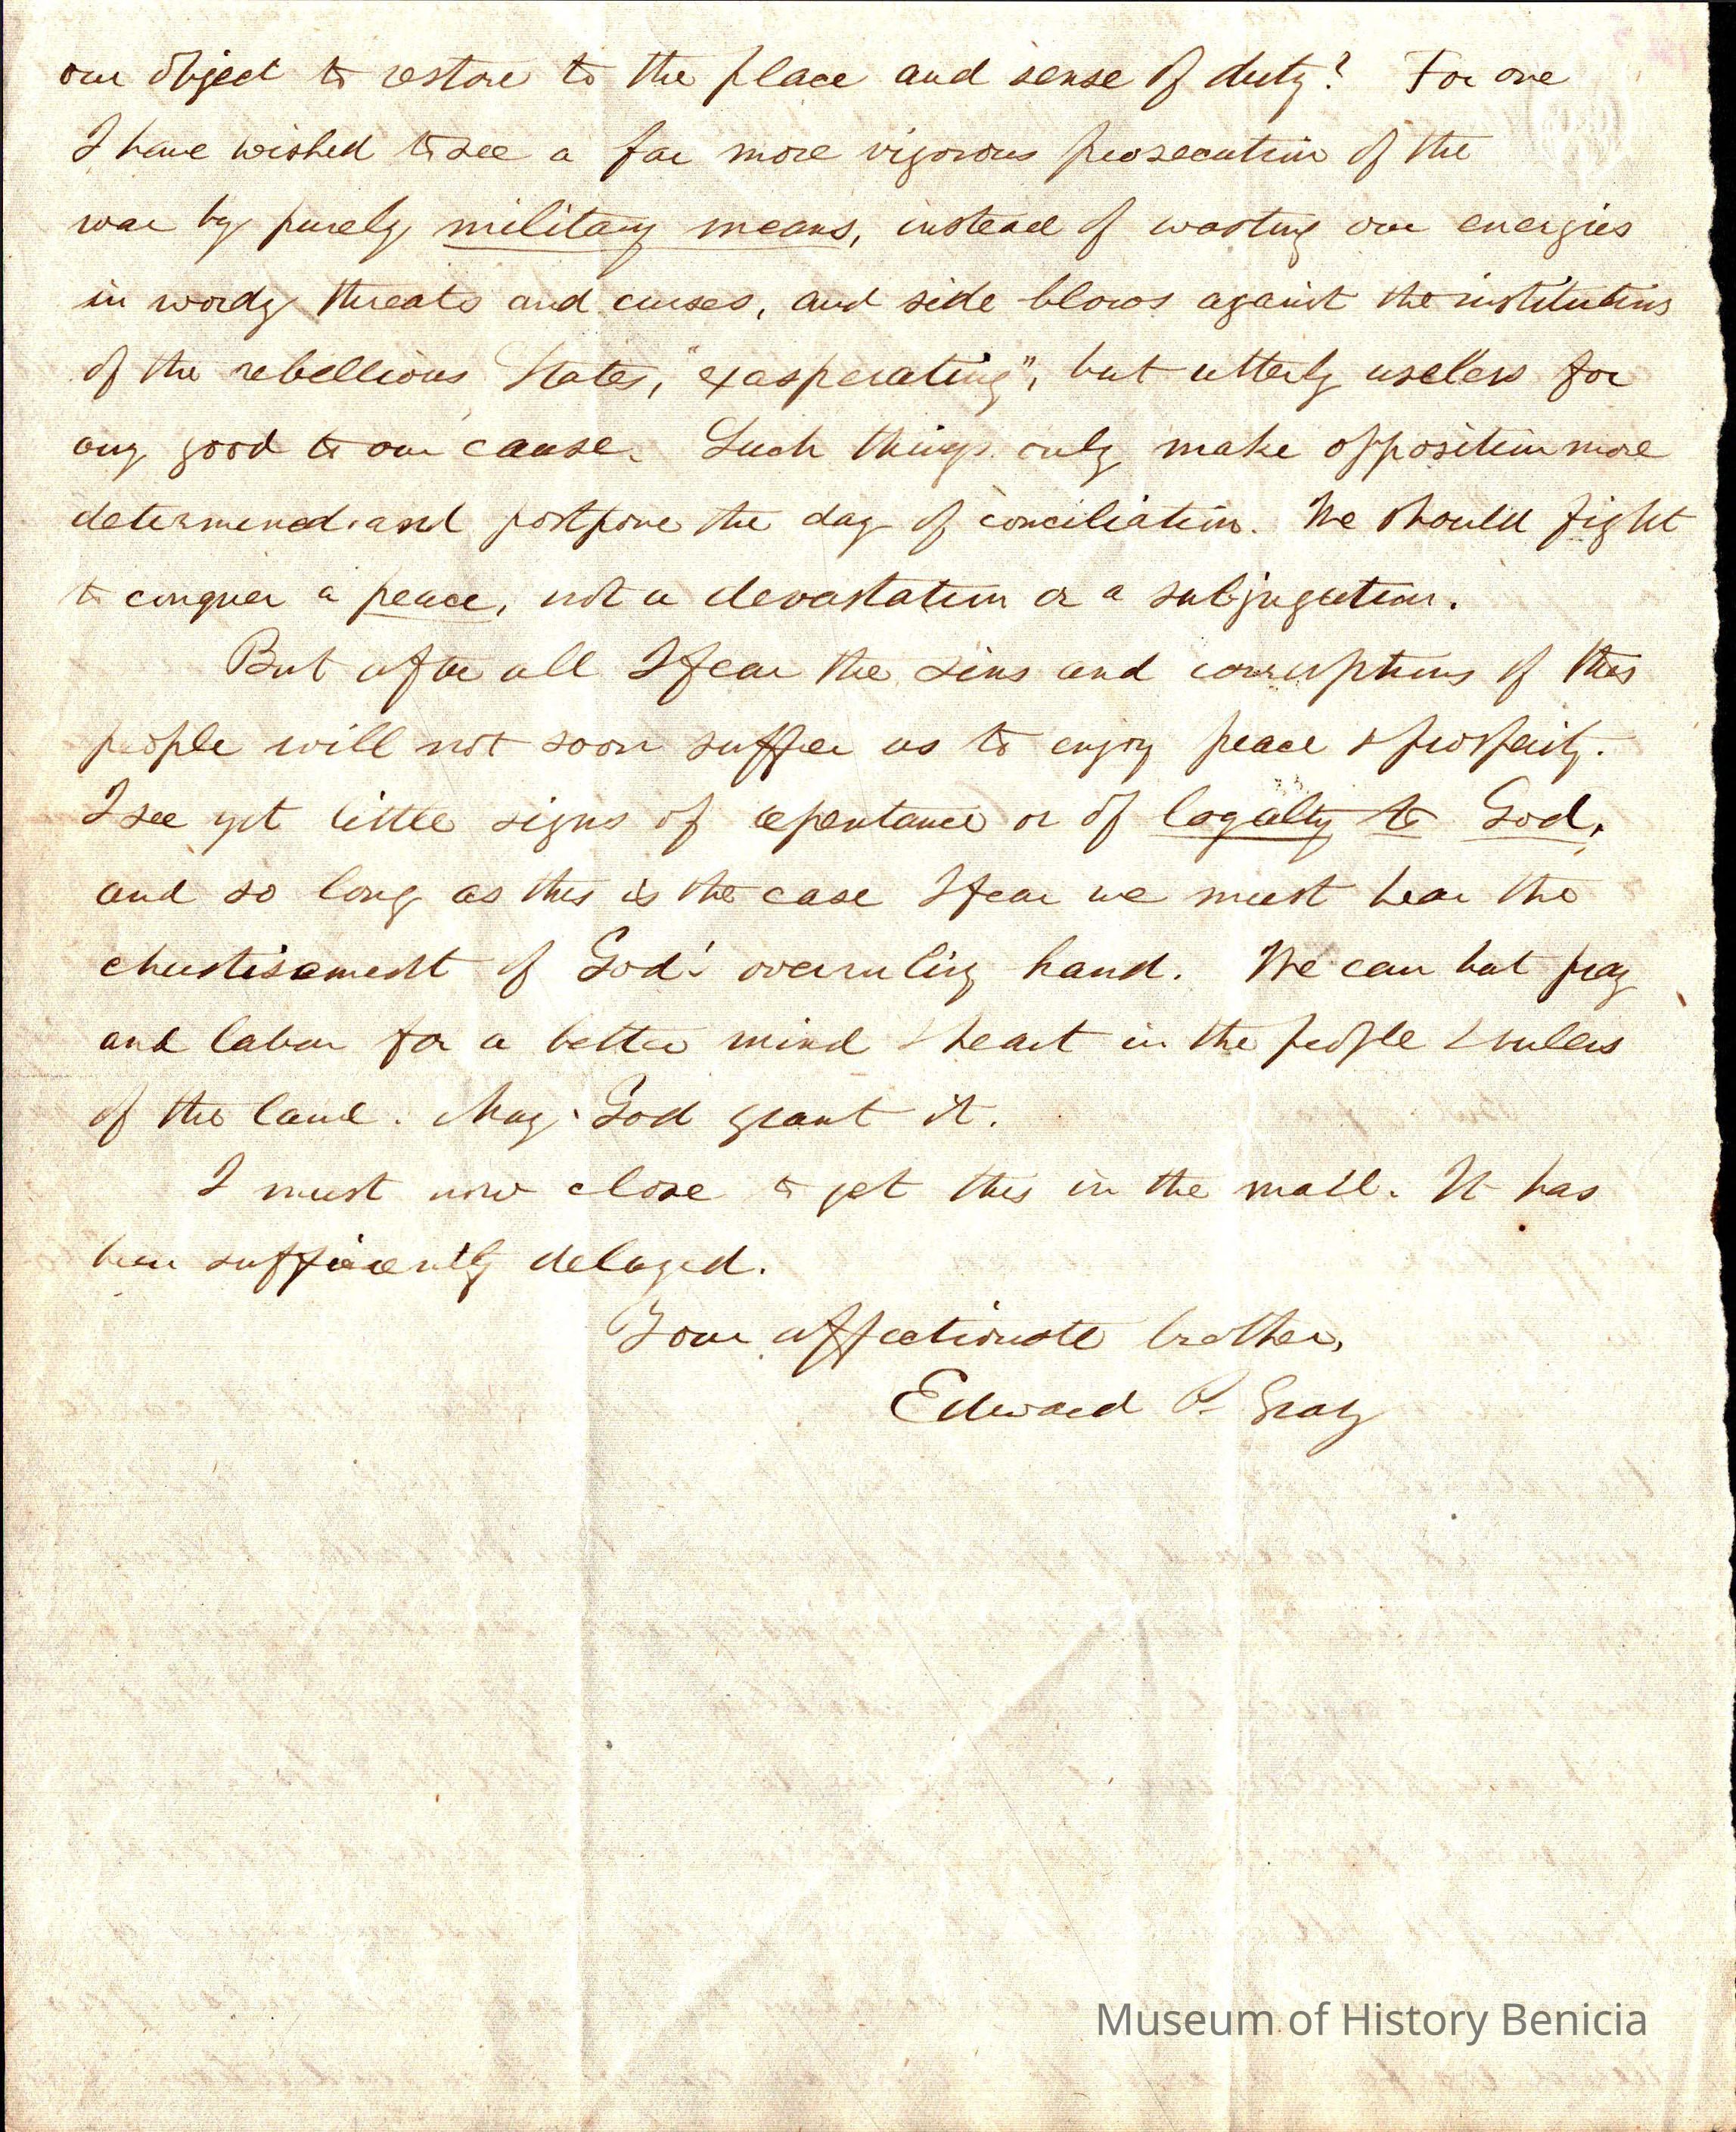 our object to restore to the place and sense of duty? For one
I have wished to see a far more vigorous prosecution of the
war by purely military means, instead of wasting our energies
in wordy threats and curses, and side blows against the institutions
of the rebellious States, "exasperating", but utterly useless for
any good to our cause. Such things only make opposition more
determined and postpone the day of conciliation. We should fight
to conquer a peace, not a devastation or a subjugation.
But after all I fear the sins and corruptions of this
people will not soon suffer us to enjoy peace & prosperity.
I see yet little signs of repentance or of loyalty to God,
and so long as this is the case I fear we must bear the
chastisement of God's overruling hand. We can but pray
and labor for a better mind & heart in the people & rulers
of the land. May God grant it.
I must now close to get this in the mail. It has
been sufficiently delayed.
Your affectionate brother,
Edward P. Gray
Museum of History Benicia